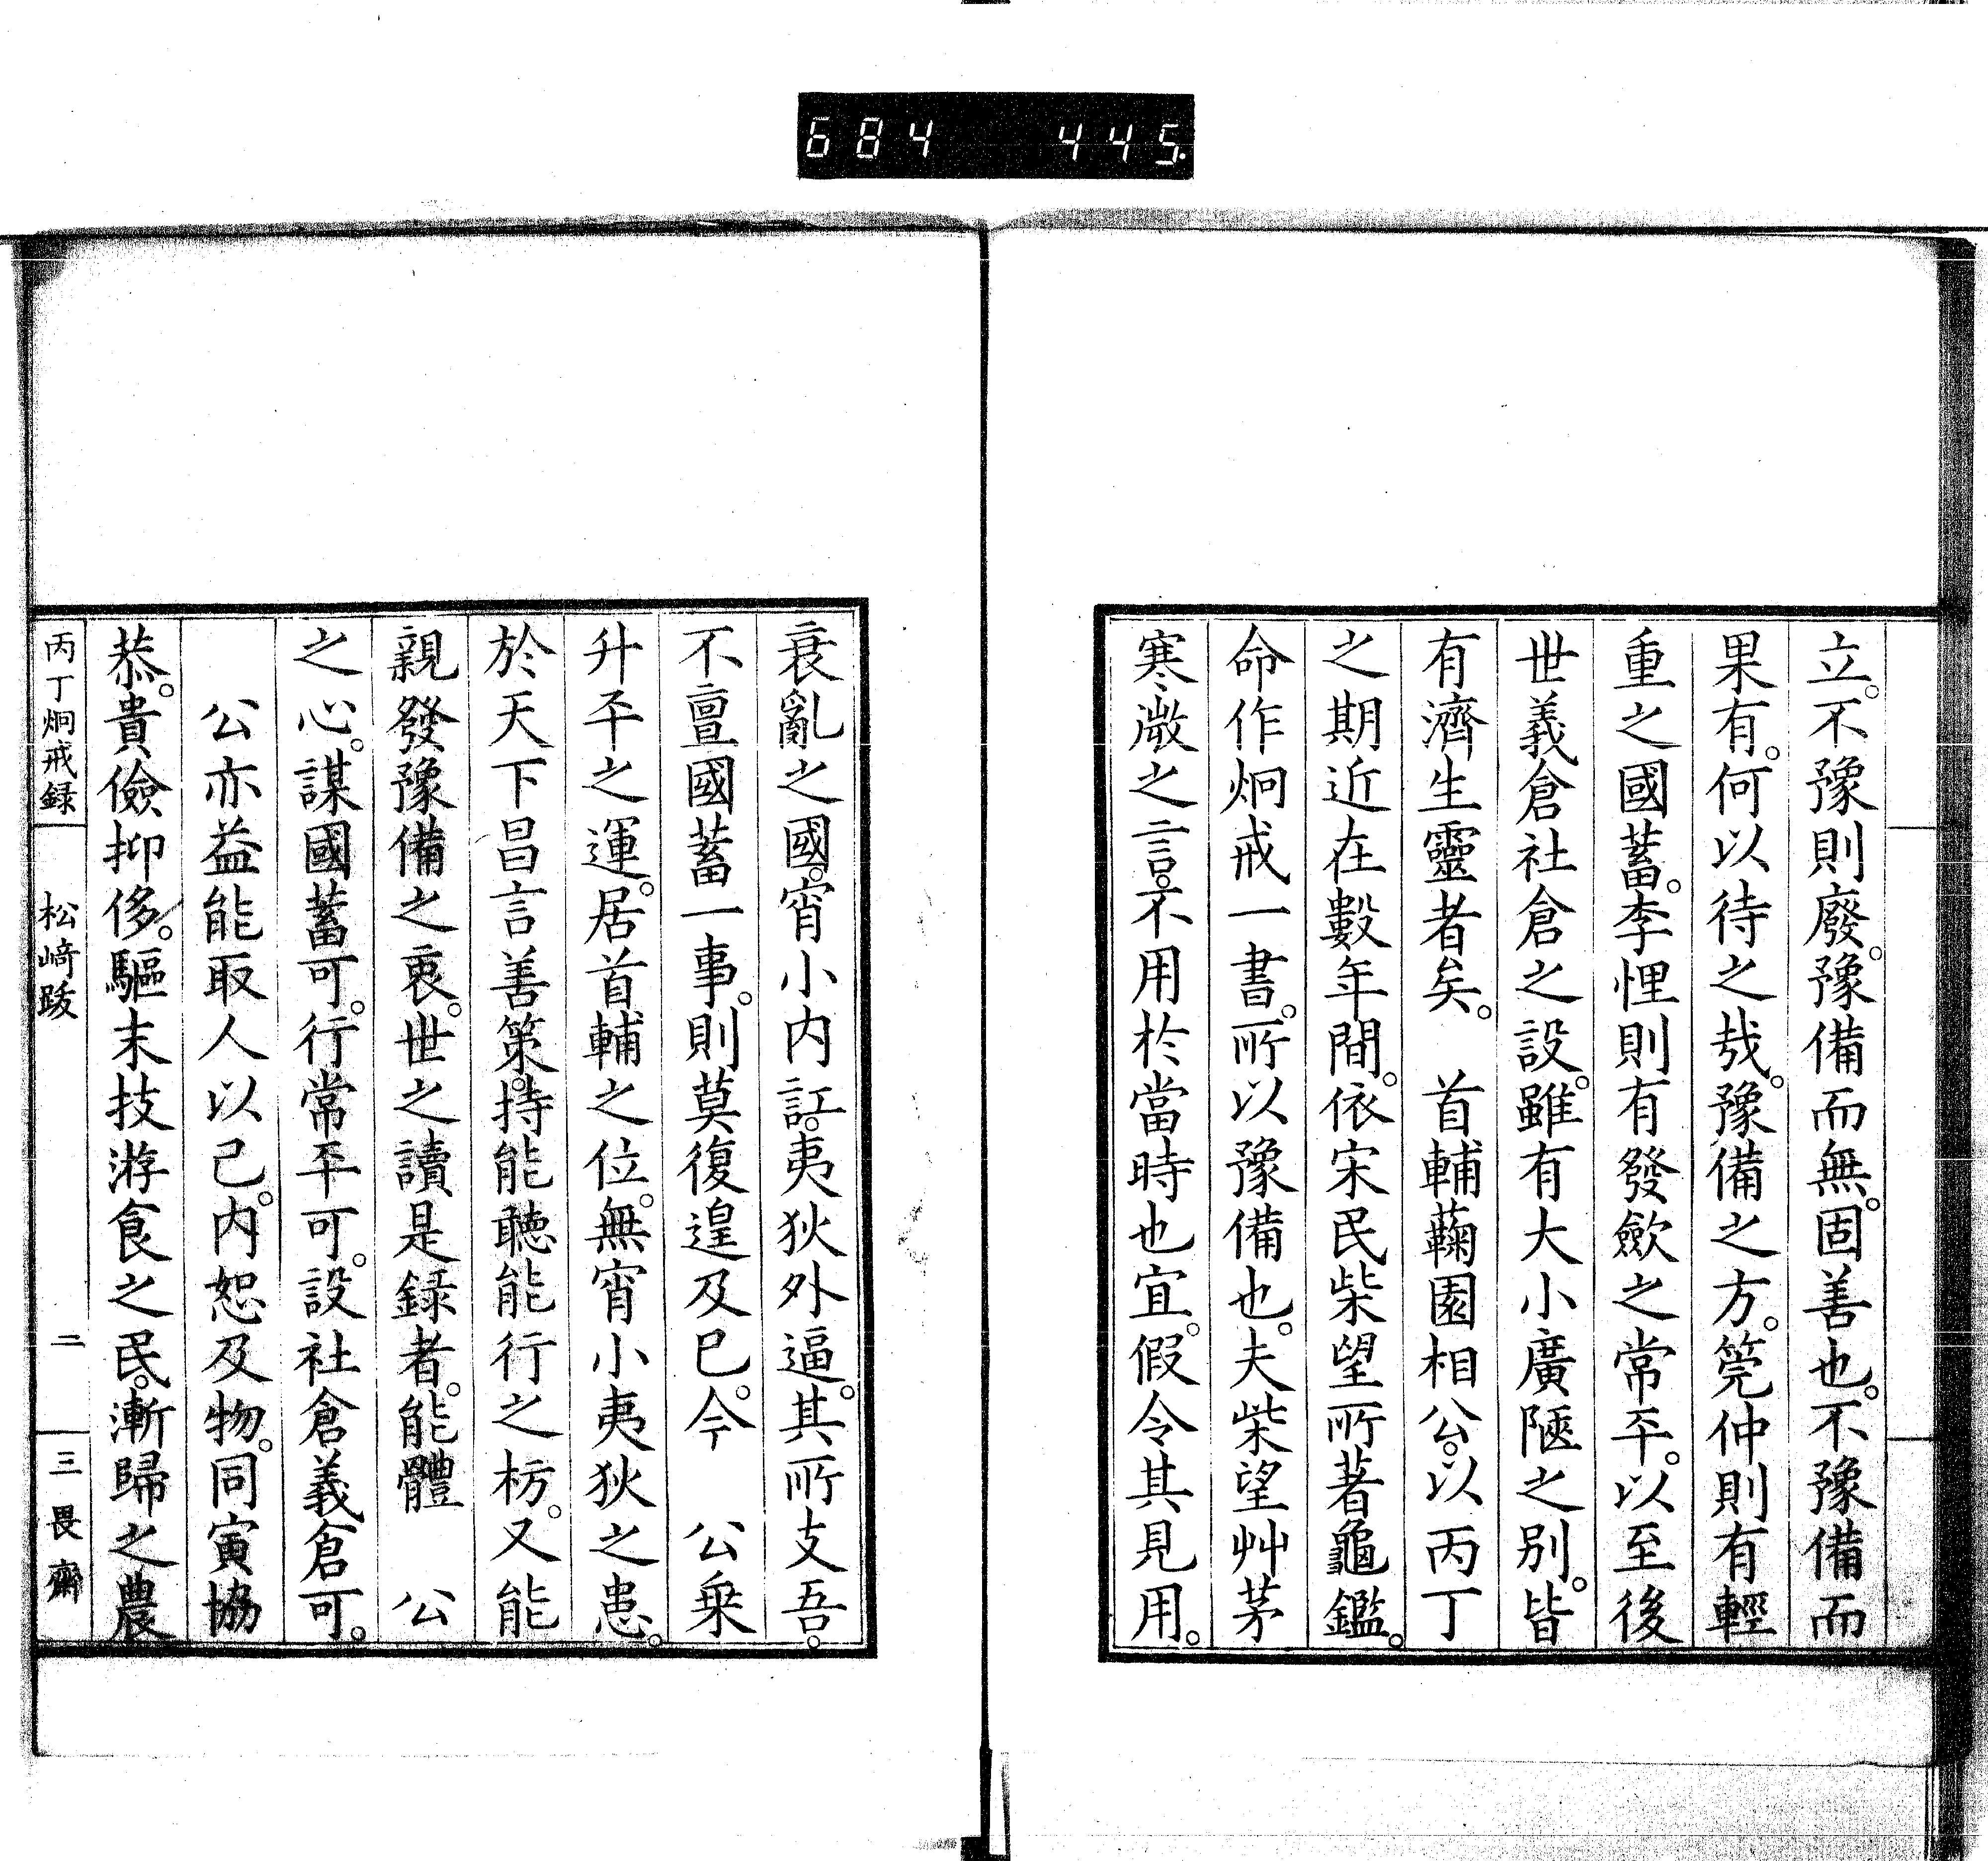 684 445
立。不豫則廢。豫備而無。固善也。不豫備而
果有。何以待之哉。豫備之方。筦仲則有輕
重之國蓄。李悝則有發斂之常平。以至後
世義倉社倉之設。雖有大小廣陿之別。皆
有濟生靈者矣。　首輔蘜園相公。以丙丁
之期近在數年間。依宋民柴望所著龜鑑。
命作炯戒一書。所以豫備也。夫柴望艸茅
寒微之言。不用於當時也宜。假令其見用。
衰亂之國。宵小內訌。夷狄外逼。其所支吾。
不亶國蓄一事。則莫復遑及已。今　公乘
升平之運。居首輔之位。無宵小夷狄之患。
於天下昌言善策。持能聽能行之枋。又能
親發豫備之衷。世之讀是錄者。能體　公
之心。謀國蓄可。行常平可。設社倉義倉可。
公亦益能取人以己。內恕及物。同寅協
恭。貴儉抑侈。驅末技游食之民。漸歸之農
丙丁炯戒録　松﨑跋　二　三畏齋